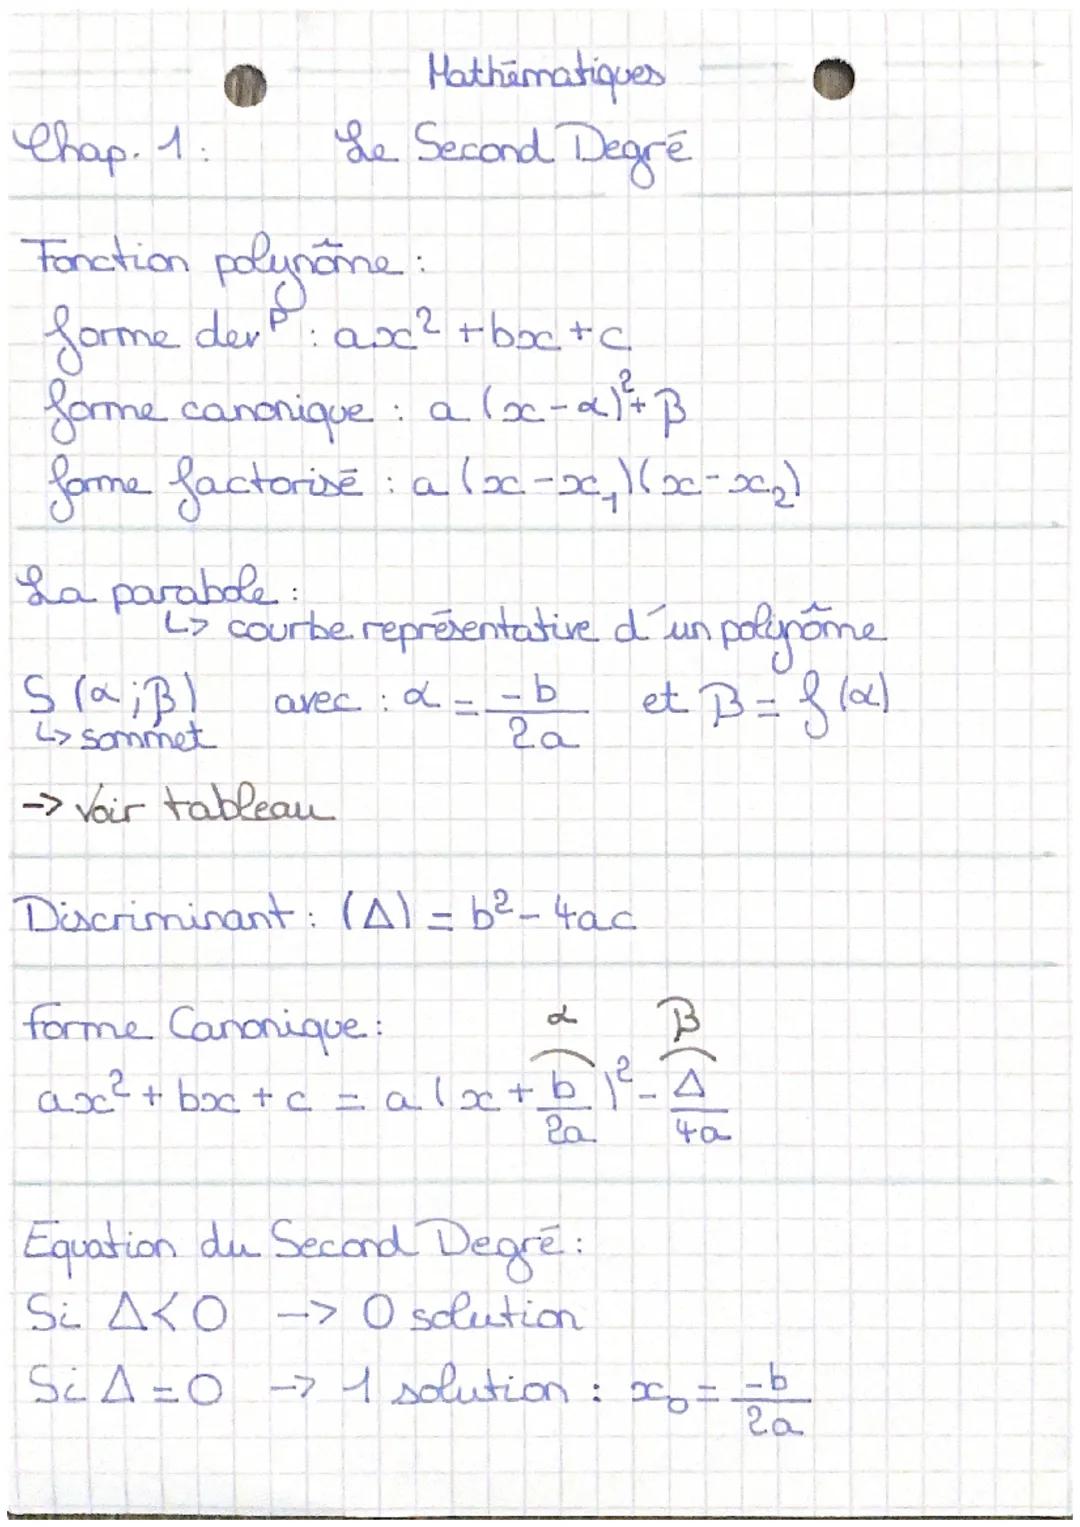 Mathématiques
Chap. 1 : Le Second Degré
Fonction polynôme :
forme devᵖ : ax² + bx + c
forme canonique : a (x - α)² + β
forme factorisé : a (x - x₁)(x - x₂)
La parabole :
↳ courbe représentative d'un polynôme
S (α ; β) avec : α = -b/2a et β = f(α)
↳ sommet
-> Voir tableau
Discriminant : (Δ) = b² - 4ac
forme Canonique : α β
ax² + bx + c = a (x + b/2a)² - Δ/4a
Equation du Second Degré :
Si Δ < 0 -> 0 solution
Si Δ = 0 -> 1 solution : x₀ = -b/2a